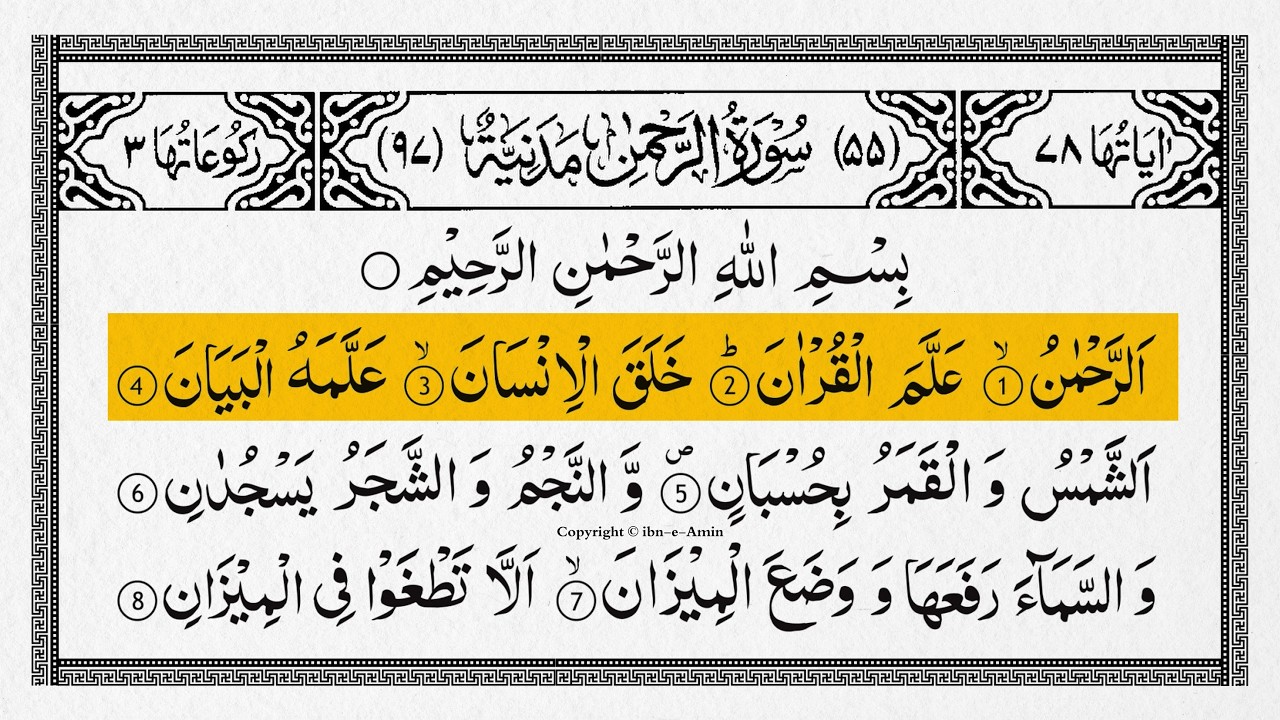 اٰیَاتُهَا ٧٨ (۵۵) سُوْرَةُ الرَّحْمٰنِ مَدَنِيَّةٌ (٩٧) رُكُوْعَاتُهَا ٣
بِسْمِ اللّٰهِ الرَّحْمٰنِ الرَّحِيْمِ ○
اَلرَّحْمٰنُ ۙ① عَلَّمَ الْقُرْاٰنَ ؕ② خَلَقَ الْاِنْسَانَ ۙ③ عَلَّمَهُ الْبَيَانَ ④
اَلشَّمْسُ وَ الْقَمَرُ بِحُسْبَانٍ ۪⑤ وَّ النَّجْمُ وَ الشَّجَرُ يَسْجُدٰنِ ⑥
Copyright © ibn-e-Amin
وَ السَّمَآءَ رَفَعَهَا وَ وَضَعَ الْمِيْزَانَ ۙ⑦ اَلَّا تَطْغَوْا فِی الْمِيْزَانِ ⑧